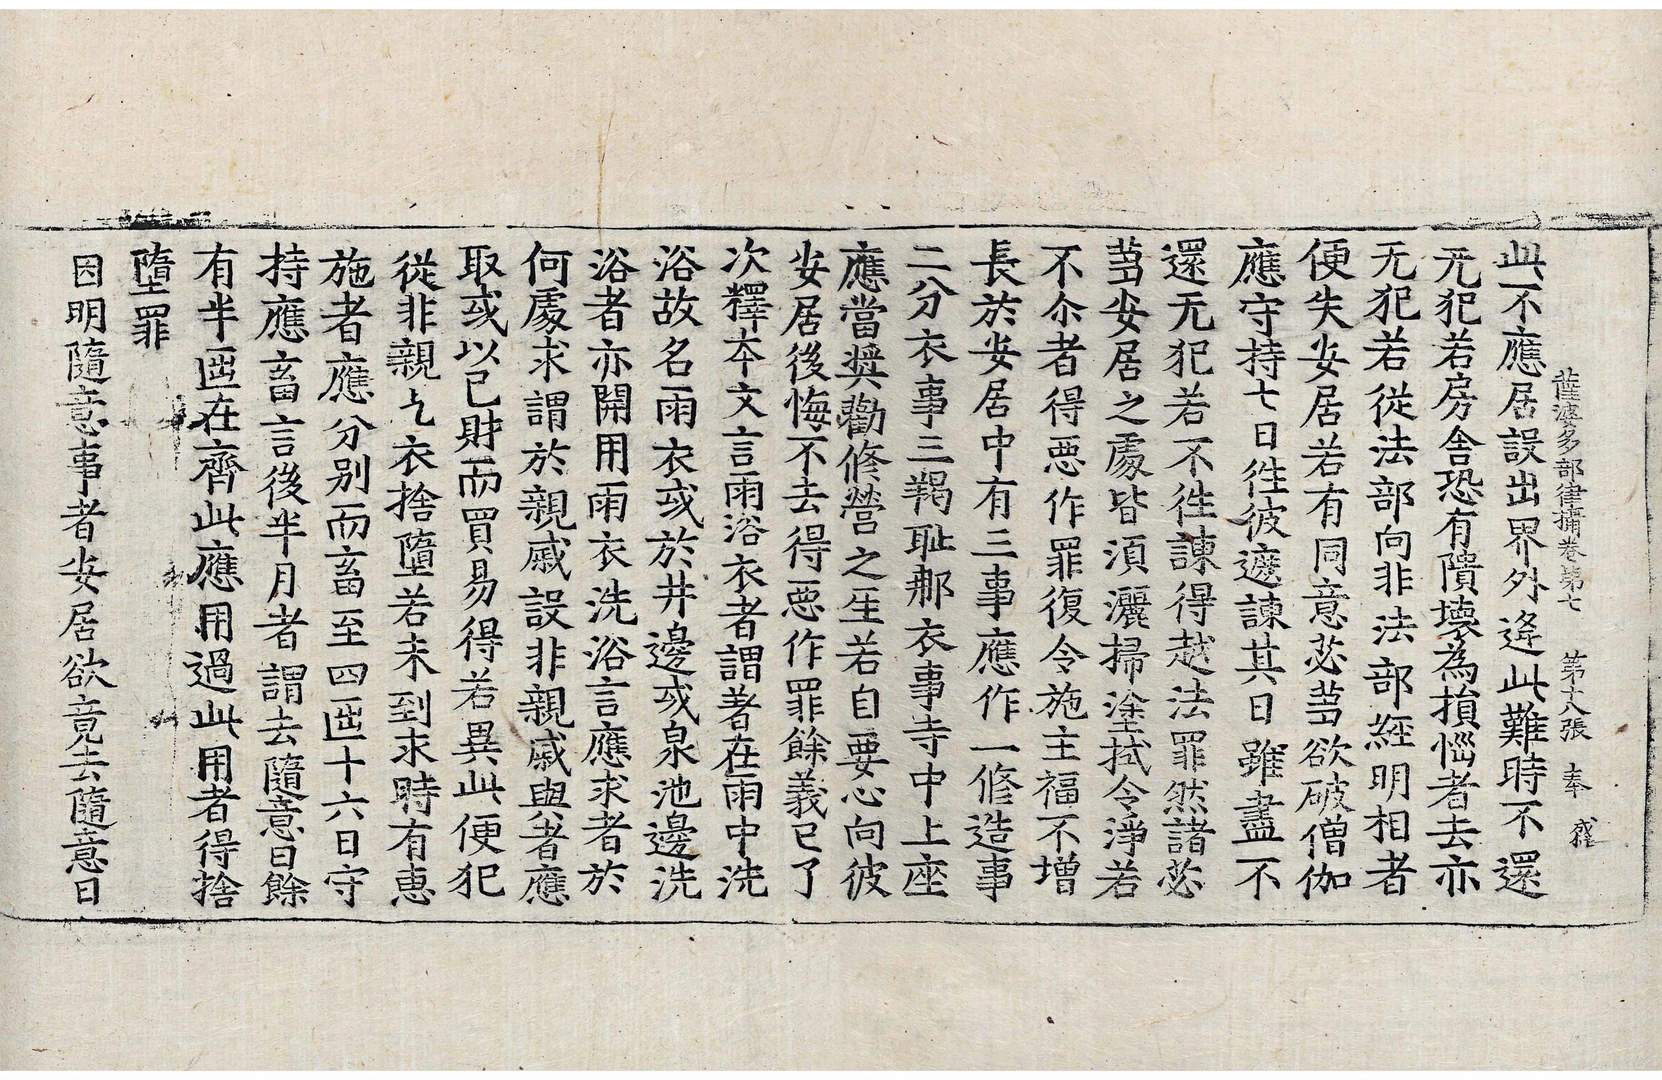 薩婆多部律攝卷第七 第十八張 奉
此不應居設出界外逢此難時不還
无犯若房舍恐有隤壞為損惱者去亦
无犯若從法部向非法部經明相者
便失安居若有同意苾芻欲破僧伽
應守持七日徃彼遮諫其日雖盡不
還无犯若不徃諫得越法罪然諸苾
芻安居之處皆湏灑掃塗拭令淨若
不尒者得惡作罪復令施主福不增
長於安居中有三事應作一修造事
二分衣事三羯耻那衣事寺中上座
應當奬勸修營之生若自要心向彼
安居後悔不去得惡作罪餘義已了
次釋夲文言雨浴衣者謂著在雨中洗
浴故名雨衣或於井邊或泉池邊洗
浴者亦開用雨衣洗浴言應求者於
何處求謂於親戚設非親戚與者應
取或以己財而買易得若異此便犯
從非親乞衣捨墮若未到求時有惠
施者應分別而畜至四西十六日守
持應畜言後半月者謂去隨意日餘
有半西在齊此應用過此用者得捨
墮罪
因明隨意事者安居欲竟去隨意日